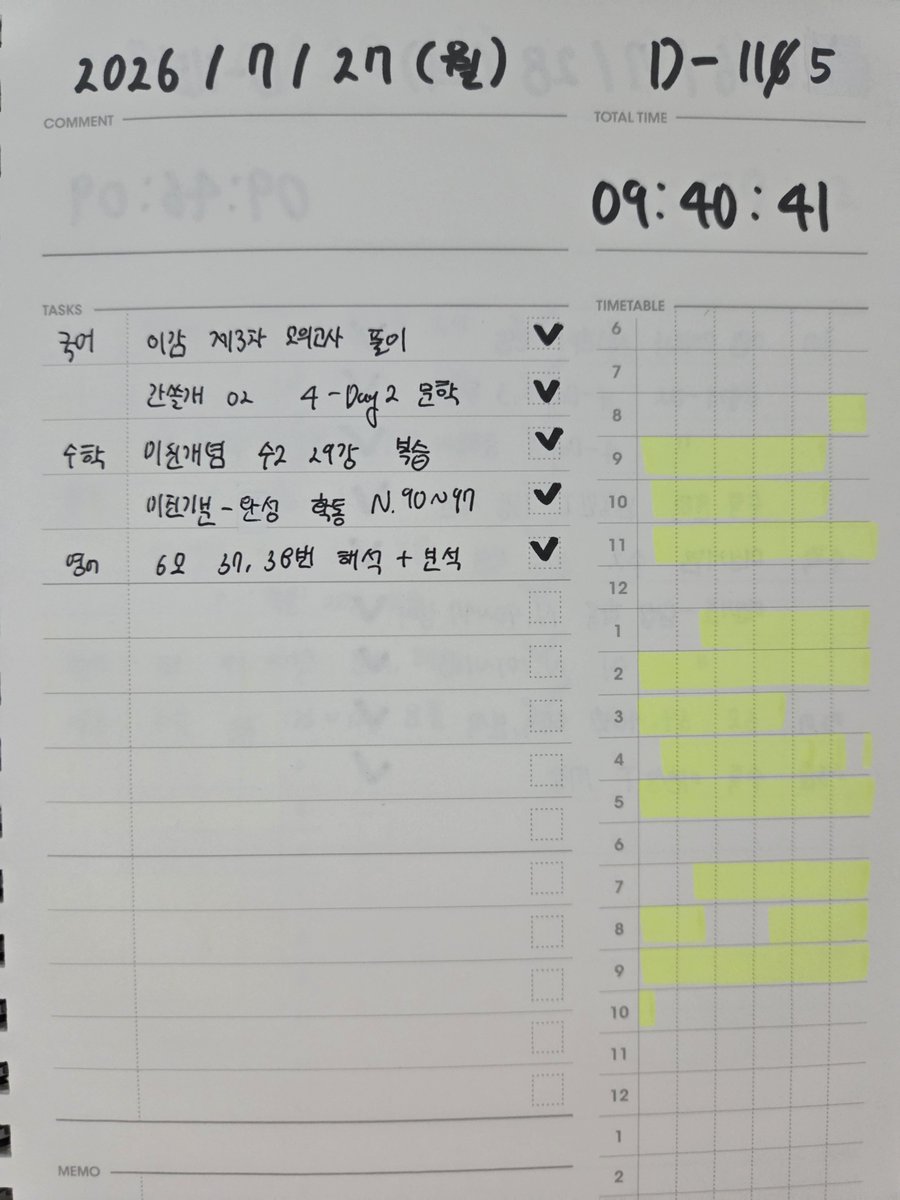 2026 / 7 / 27 (월)
D-115
COMMENT
TOTAL TIME
09:40:41
TASKS
TIMETABLE
국어 이감 제3차 모의고사 풀이
간쓸개 02 4-Day 2 문학
수학 이원개념 수2 29강 복습
이원기분-완성 학통 N.90~97
영어 6모 37, 38번 해석 + 분석
6
7
8
9
10
11
12
1
2
3
4
5
6
7
8
9
10
11
12
1
2
MEMO